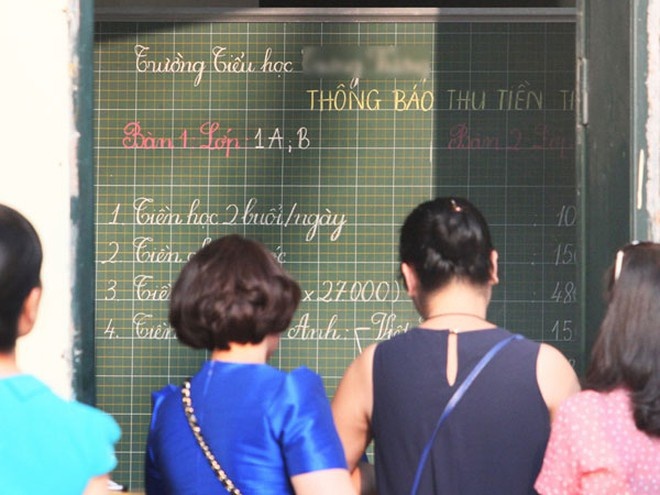 Trường Tiểu học
THÔNG BÁO THU TIỀN
Bàn 1 Lớp 1A, B
Bàn 2 Lớp
1. Tiền học 2 buổi/ngày 10
2 Tiền : 150
3 Tiền x 27000) : 48
4. Tiền Anh: Việt 15